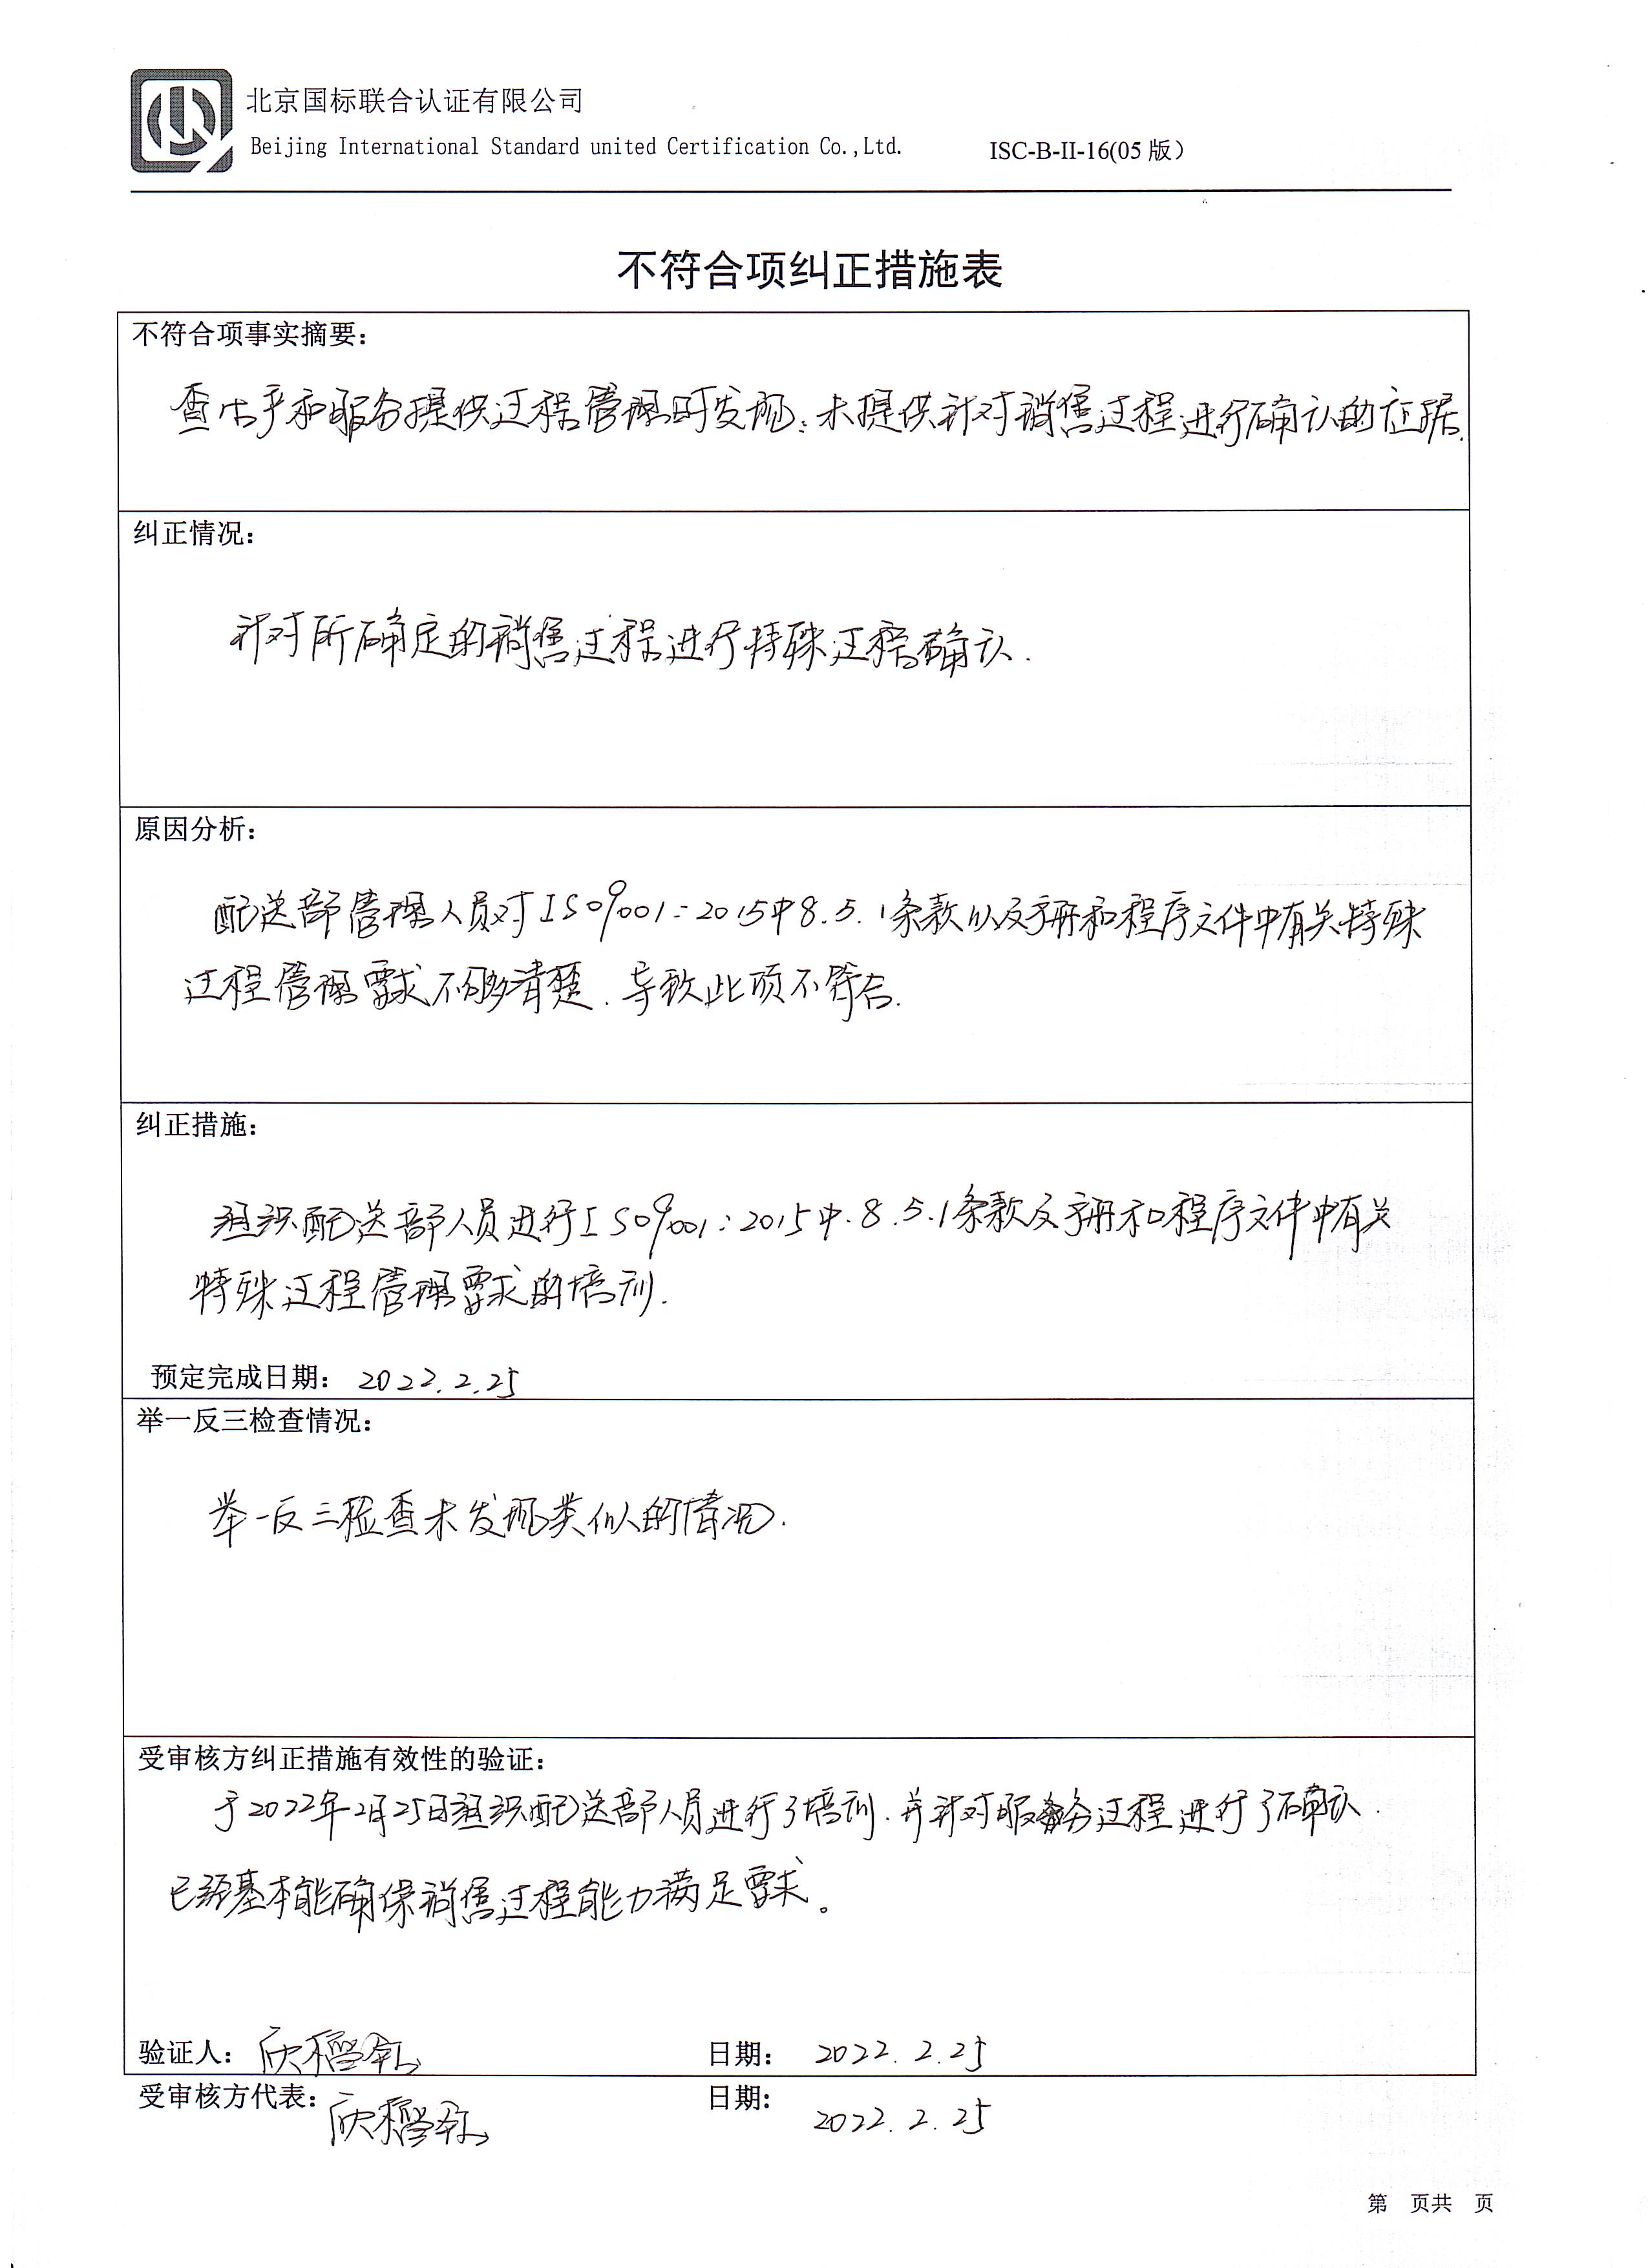 北京国标联合认证有限公司
Beijing International Standard united Certification Co.,Ltd. ISC-B-II-16(05 版）
不符合项纠正措施表
不符合项事实摘要：
查生产和服务提供过程管理时发现：未提供针对销售过程进行确认的证据.
纠正情况：
针对所确定的销售过程进行特殊过程确认.
原因分析：
配送部管理人员对ISO9001:2015中8.5.1条款以及手册和程序文件中有关特殊
过程管理要求不够清楚.导致此项不符合.
纠正措施：
组织配送部人员进行ISO9001:2015中.8.5.1条款及手册和程序文件中有关
特殊过程管理要求的培训.
预定完成日期：2022.2.25
举一反三检查情况：
举一反三检查未发现类似的情况.
受审核方纠正措施有效性的验证：
于2022年2月25日组织配送部人员进行了培训.并针对服务过程进行了确认.
已经基本能确保销售过程能力满足要求。
验证人： 日期： 2022.2.25
受审核方代表： 日期： 2022.2.25
第 页共 页